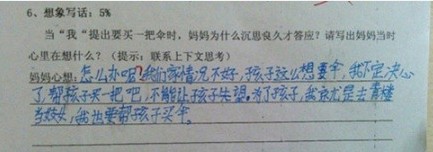 6、想象写话：5%
当“我“提出要买一把伞时，妈妈为什么沉思良久才答应？请写出妈妈当时
心里在想什么？（提示：联系上下文思考）
妈妈心想：怎么办呢？我们家情况不好，孩子这么想要伞，我下定决心
了，帮孩子买一把吧，不能让孩子失望。为了孩子，我哪尤是去青楼
当妓女，我也要帮孩子买伞。